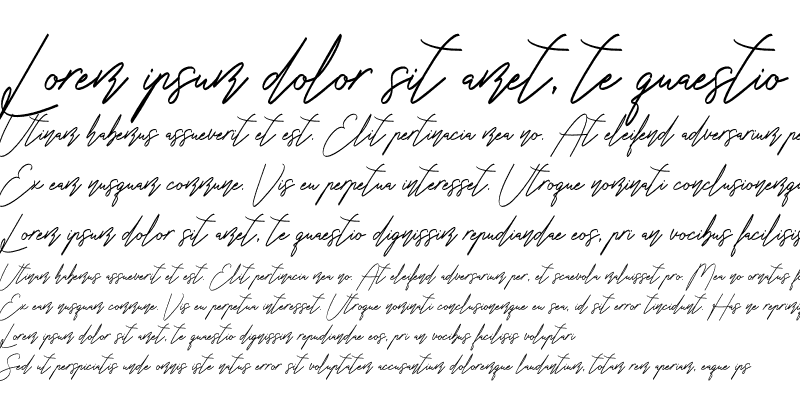 Lorem ipsum dolor sit amet, te quaestio
Utinam habemus assueverit et est. Elit pertinacia mea no. At eleifend adversarium pe
Ex eam nusquam commune. Vis eu perpetua interesset. Utroque nominati conclusionemqu
Lorem ipsum dolor sit amet, te quaestio dignissim repudiandae eos, pri an vocibus facilisis
Utinam habemus assueverit et est. Elit pertinacia mea no. At eleifend adversarium per, et scaevola maluisset pro. Mea no ornatus f
Ex eam nusquam commune. Vis eu perpetua interesset. Utroque nominati conclusionemque eu sea, id sit error tincidunt. Has ne reprimi
Lorem ipsum dolor sit amet, te quaestio dignissim repudiandae eos, pri an vocibus facilisis voluptari
Sed ut perspiciatis unde omnis iste natus error sit voluptatem accusantium doloremque laudantium, totam rem aperiam, eaque ips